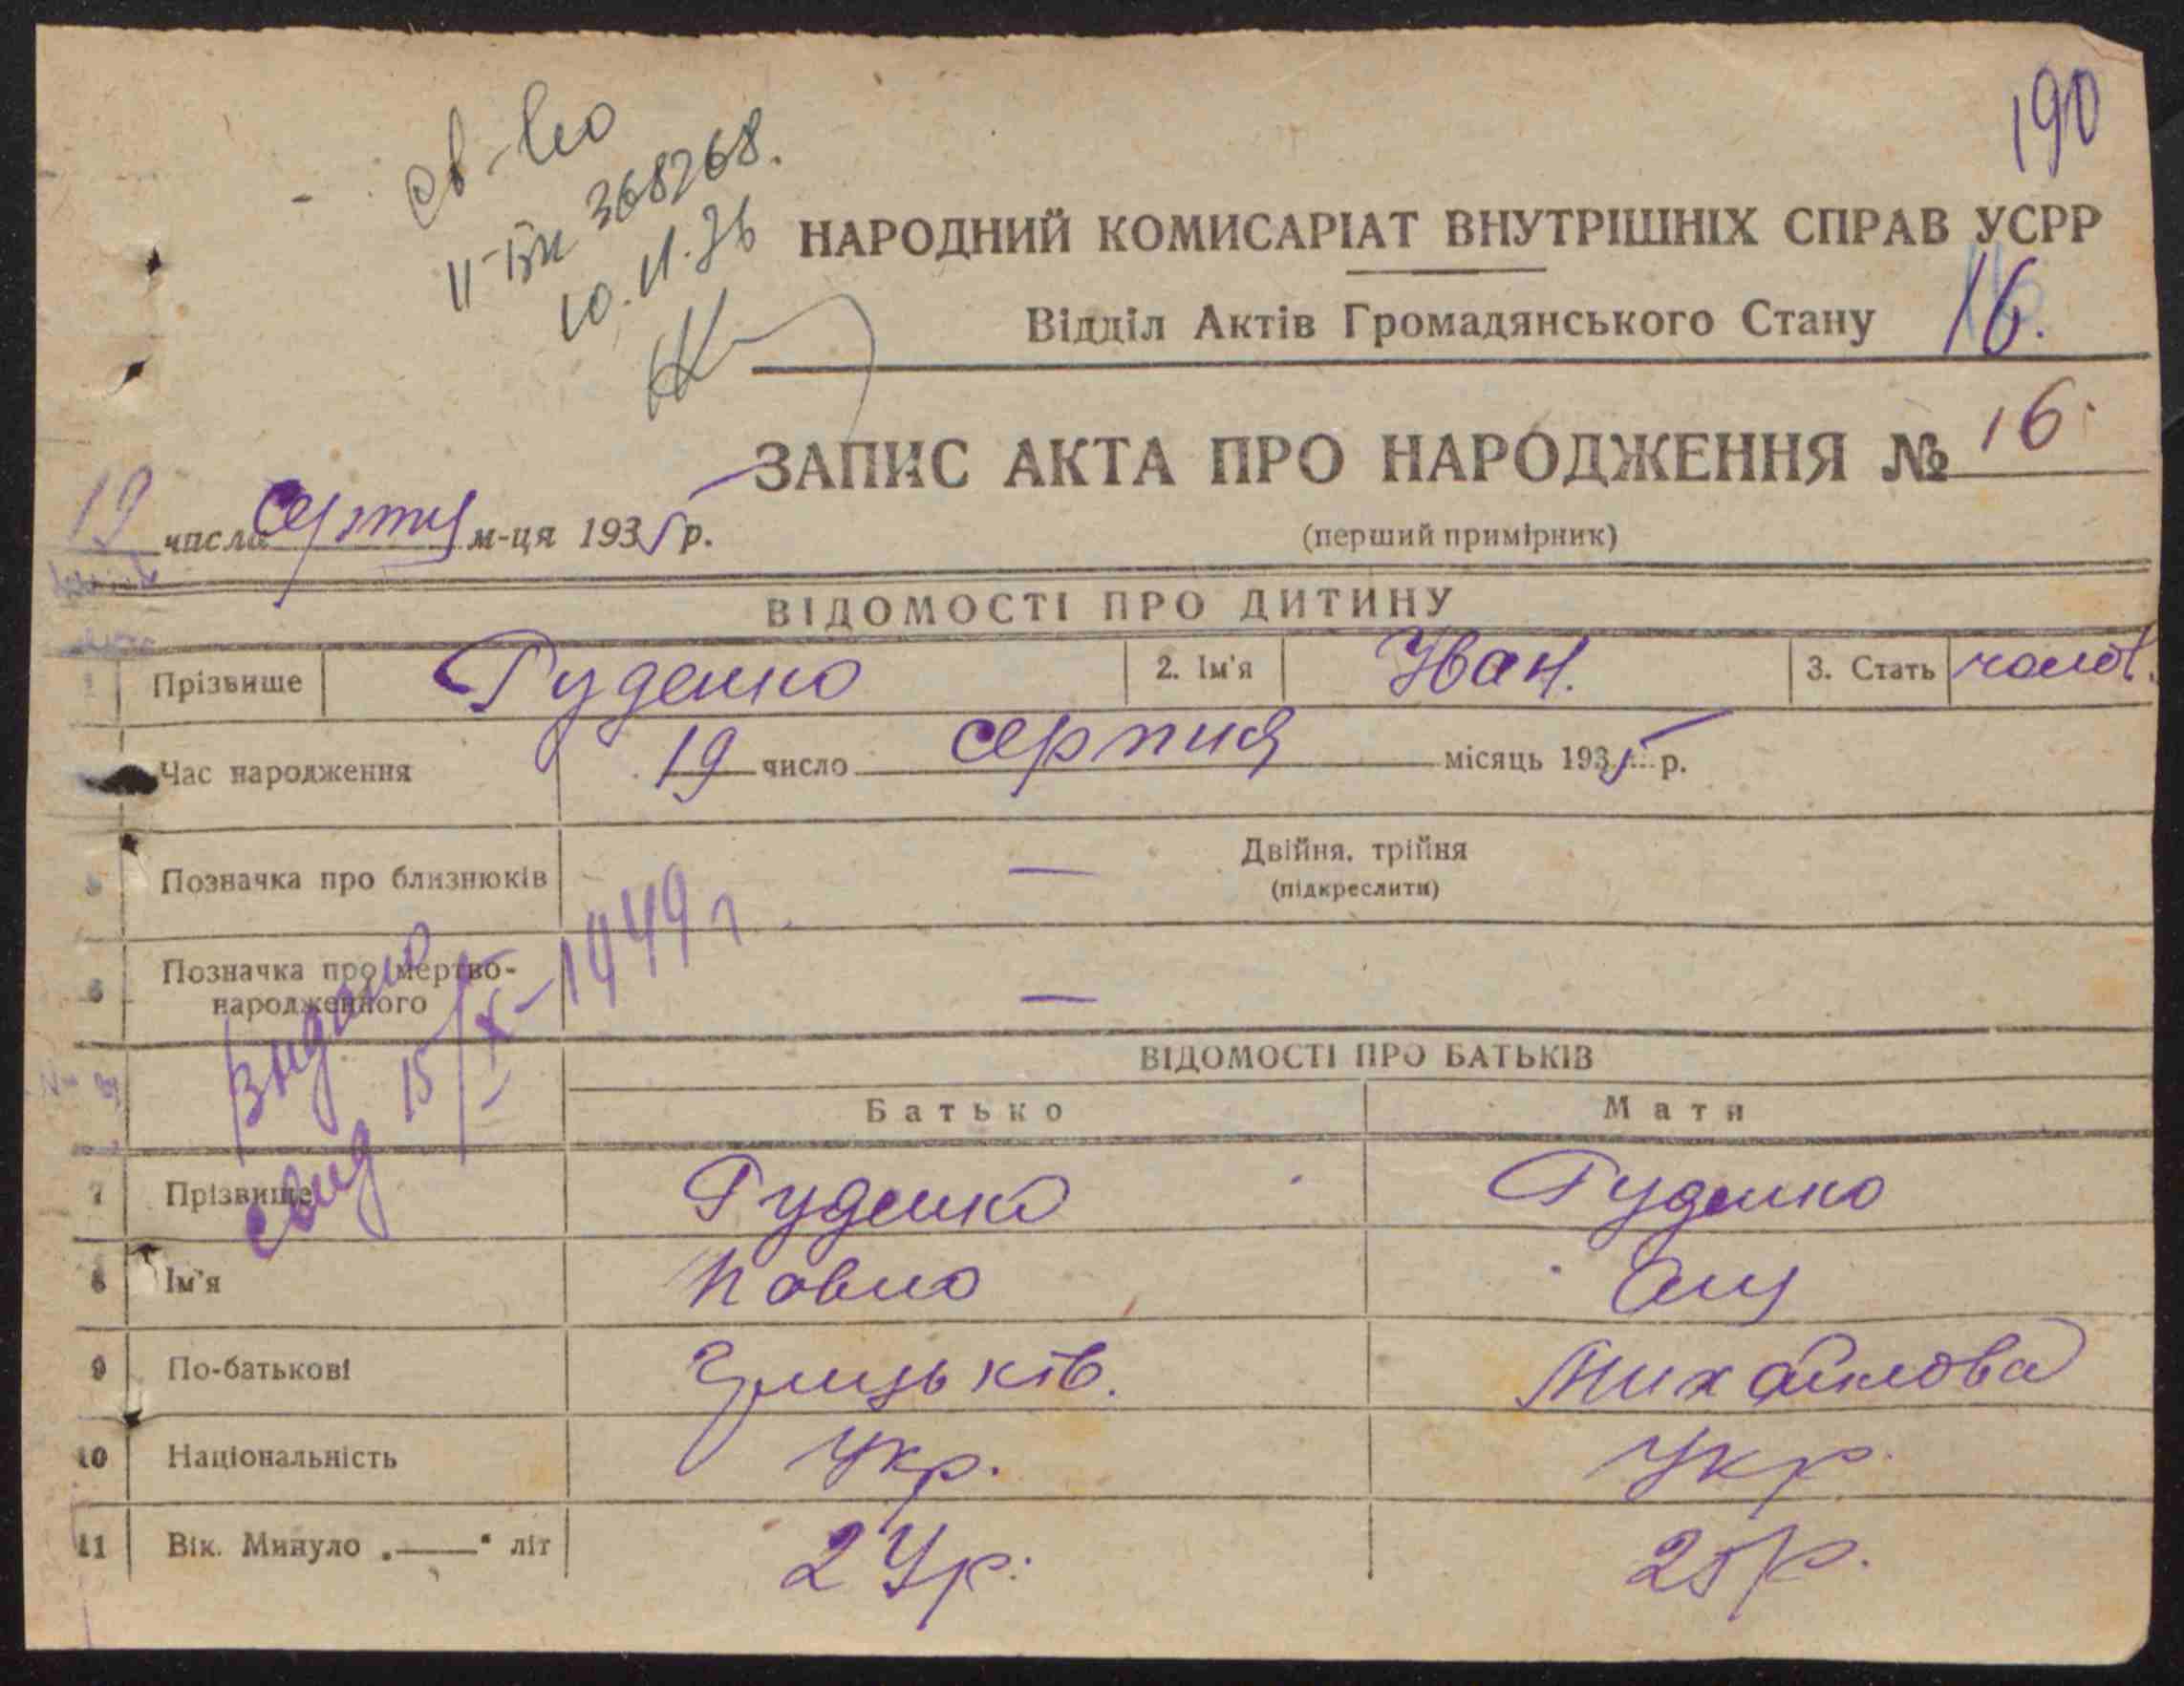 190
св-во
II-БК 368268.
10.11.76
НАРОДНИЙ КОМИСАРІАТ ВНУТРІШНІХ СПРАВ УСРР
Відділ Актів Громадянського Стану 16.
ЗАПИС АКТА ПРО НАРОДЖЕННЯ № 16
(перший примірник)
19 числа серпня м-ця 1935 р.
ВІДОМОСТІ ПРО ДИТИНУ
Прізвище Руденко 2. Ім'я Іван. 3. Стать чолов.
Час народження 19 число серпня місяць 1935 р.
Позначка про близнюків — Двійня, трійня
(підкреслити)
Позначка про мертво-
народженого —
Видано
свид 15/X-1949 г.
ВІДОМОСТІ ПРО БАТЬКІВ
Батько Мати
7 Прізвище Руденко Руденко
8 Ім'я Павло
9 По-батькові Грицьків. Михайлова
10 Національність Укр. Укр.
11 Вік. Минуло „—" літ 24р. 25р.